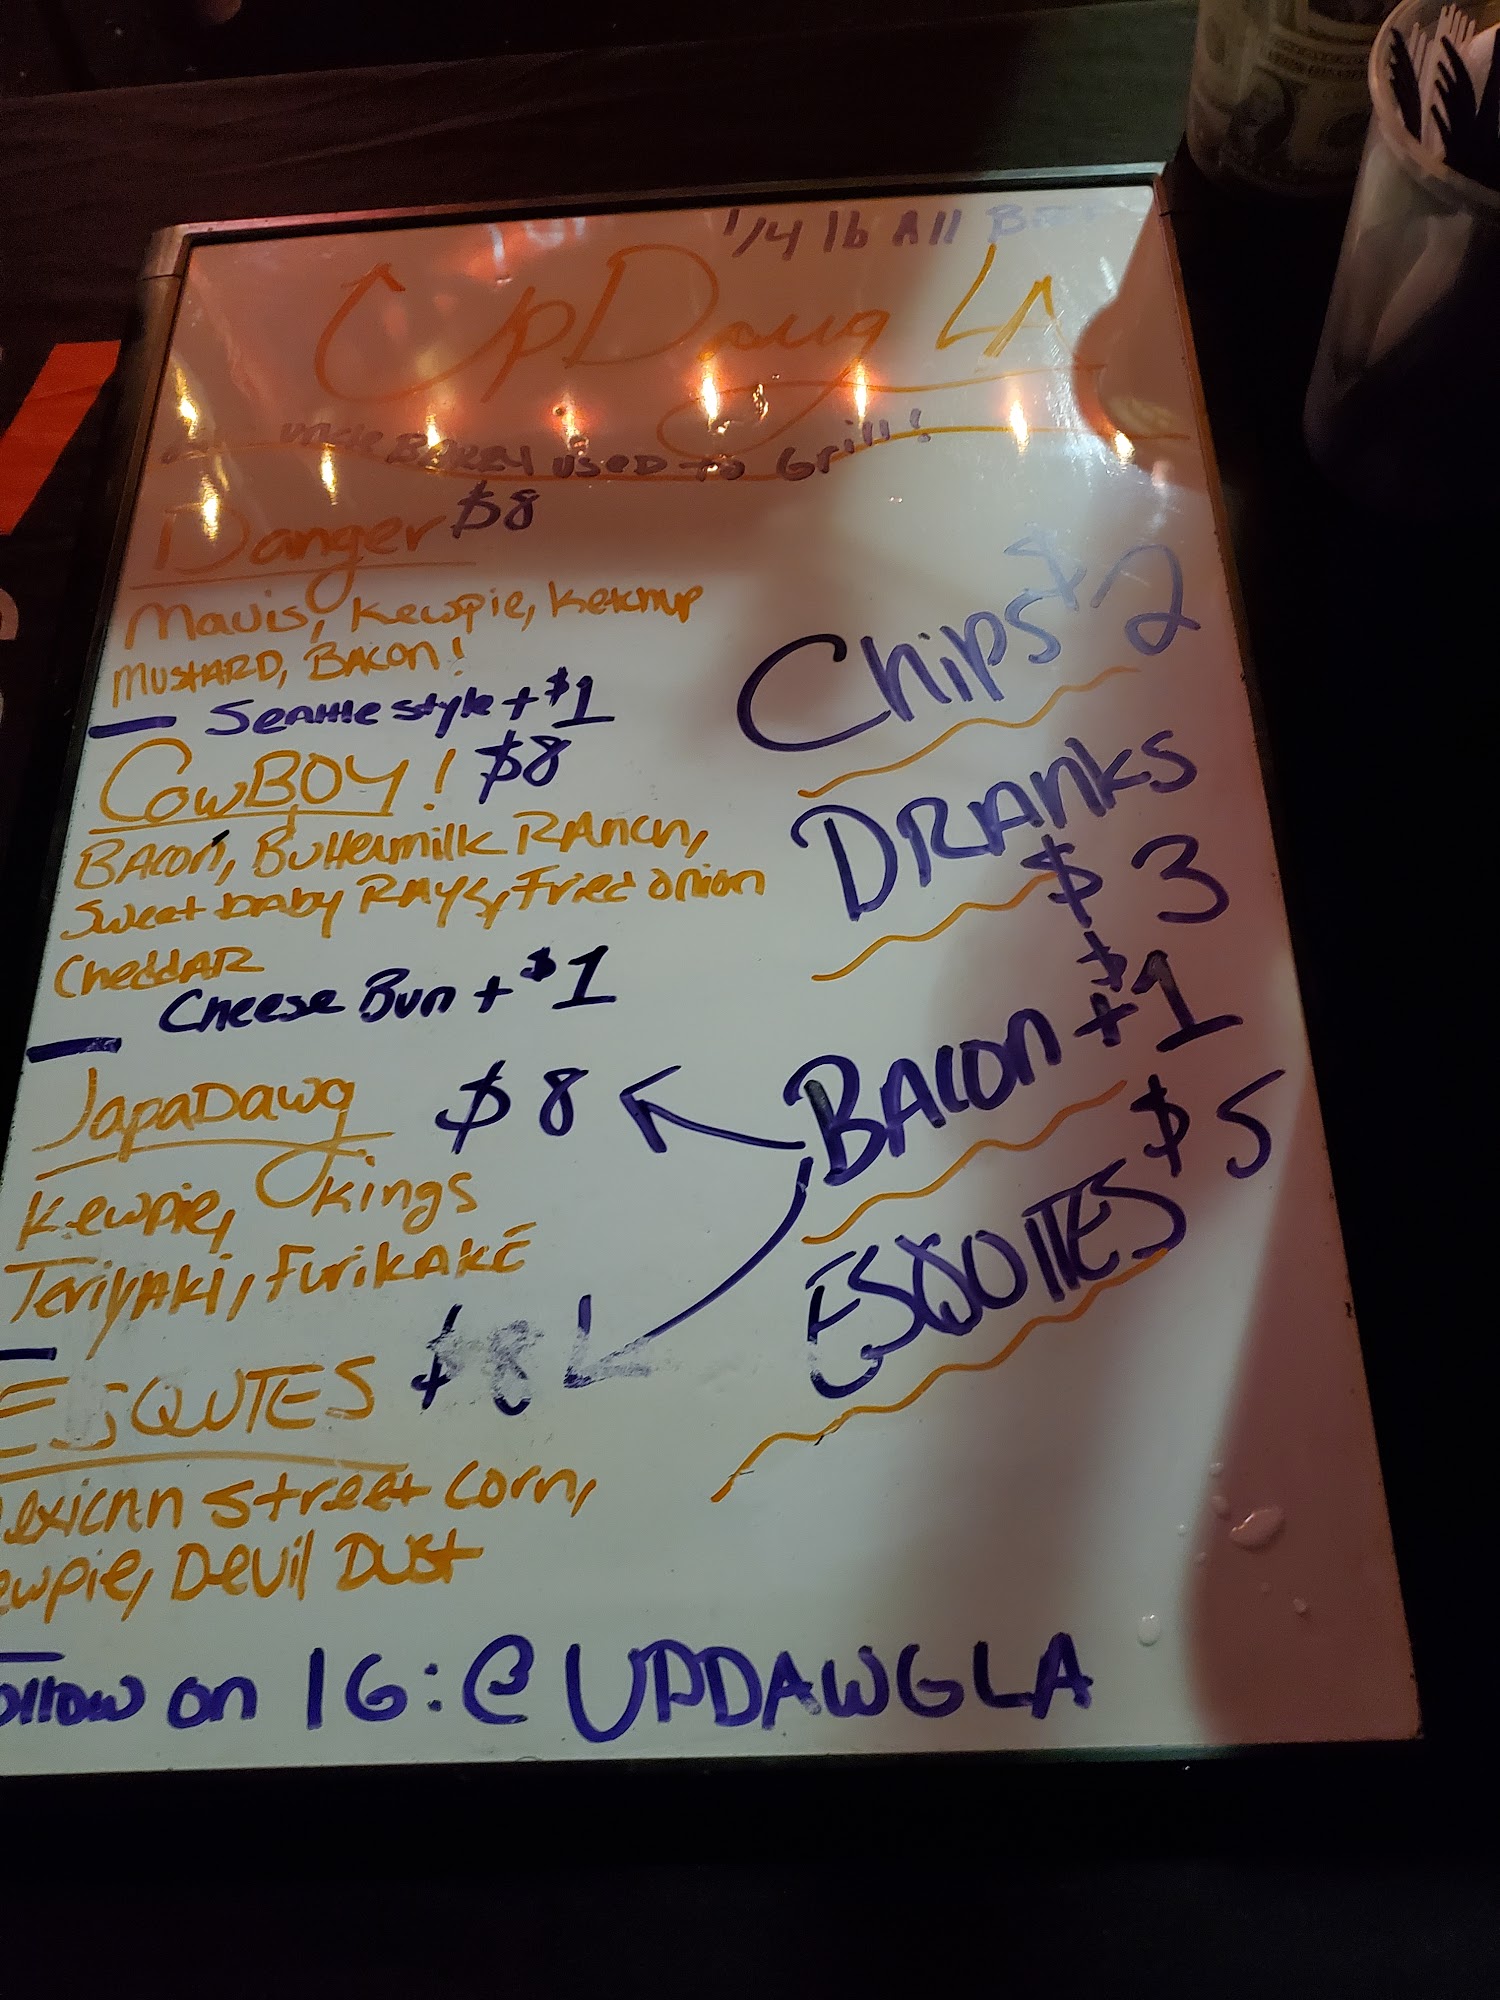 1/4 lb All
UpDawg LA
uncle BARRY used to Grill!
Danger $8
Mavis, Kewpie, Ketchup
MUSTARD, BACON!
Seattle style + $1
COWBOY! $8
BACON, Buttermilk RANCH,
Sweet baby RAYS, Fried onion
CheddAR
Cheese Bun + $1
JapaDawg $8
Kewpie, Kings
TeriyAki, FurikAKE
ESQUITES $8
street corn,
Devil Dust
on IG: @UPDAWGLA
Chips $2
DRANKS
$3
BACON + $1
ESQUITES $5